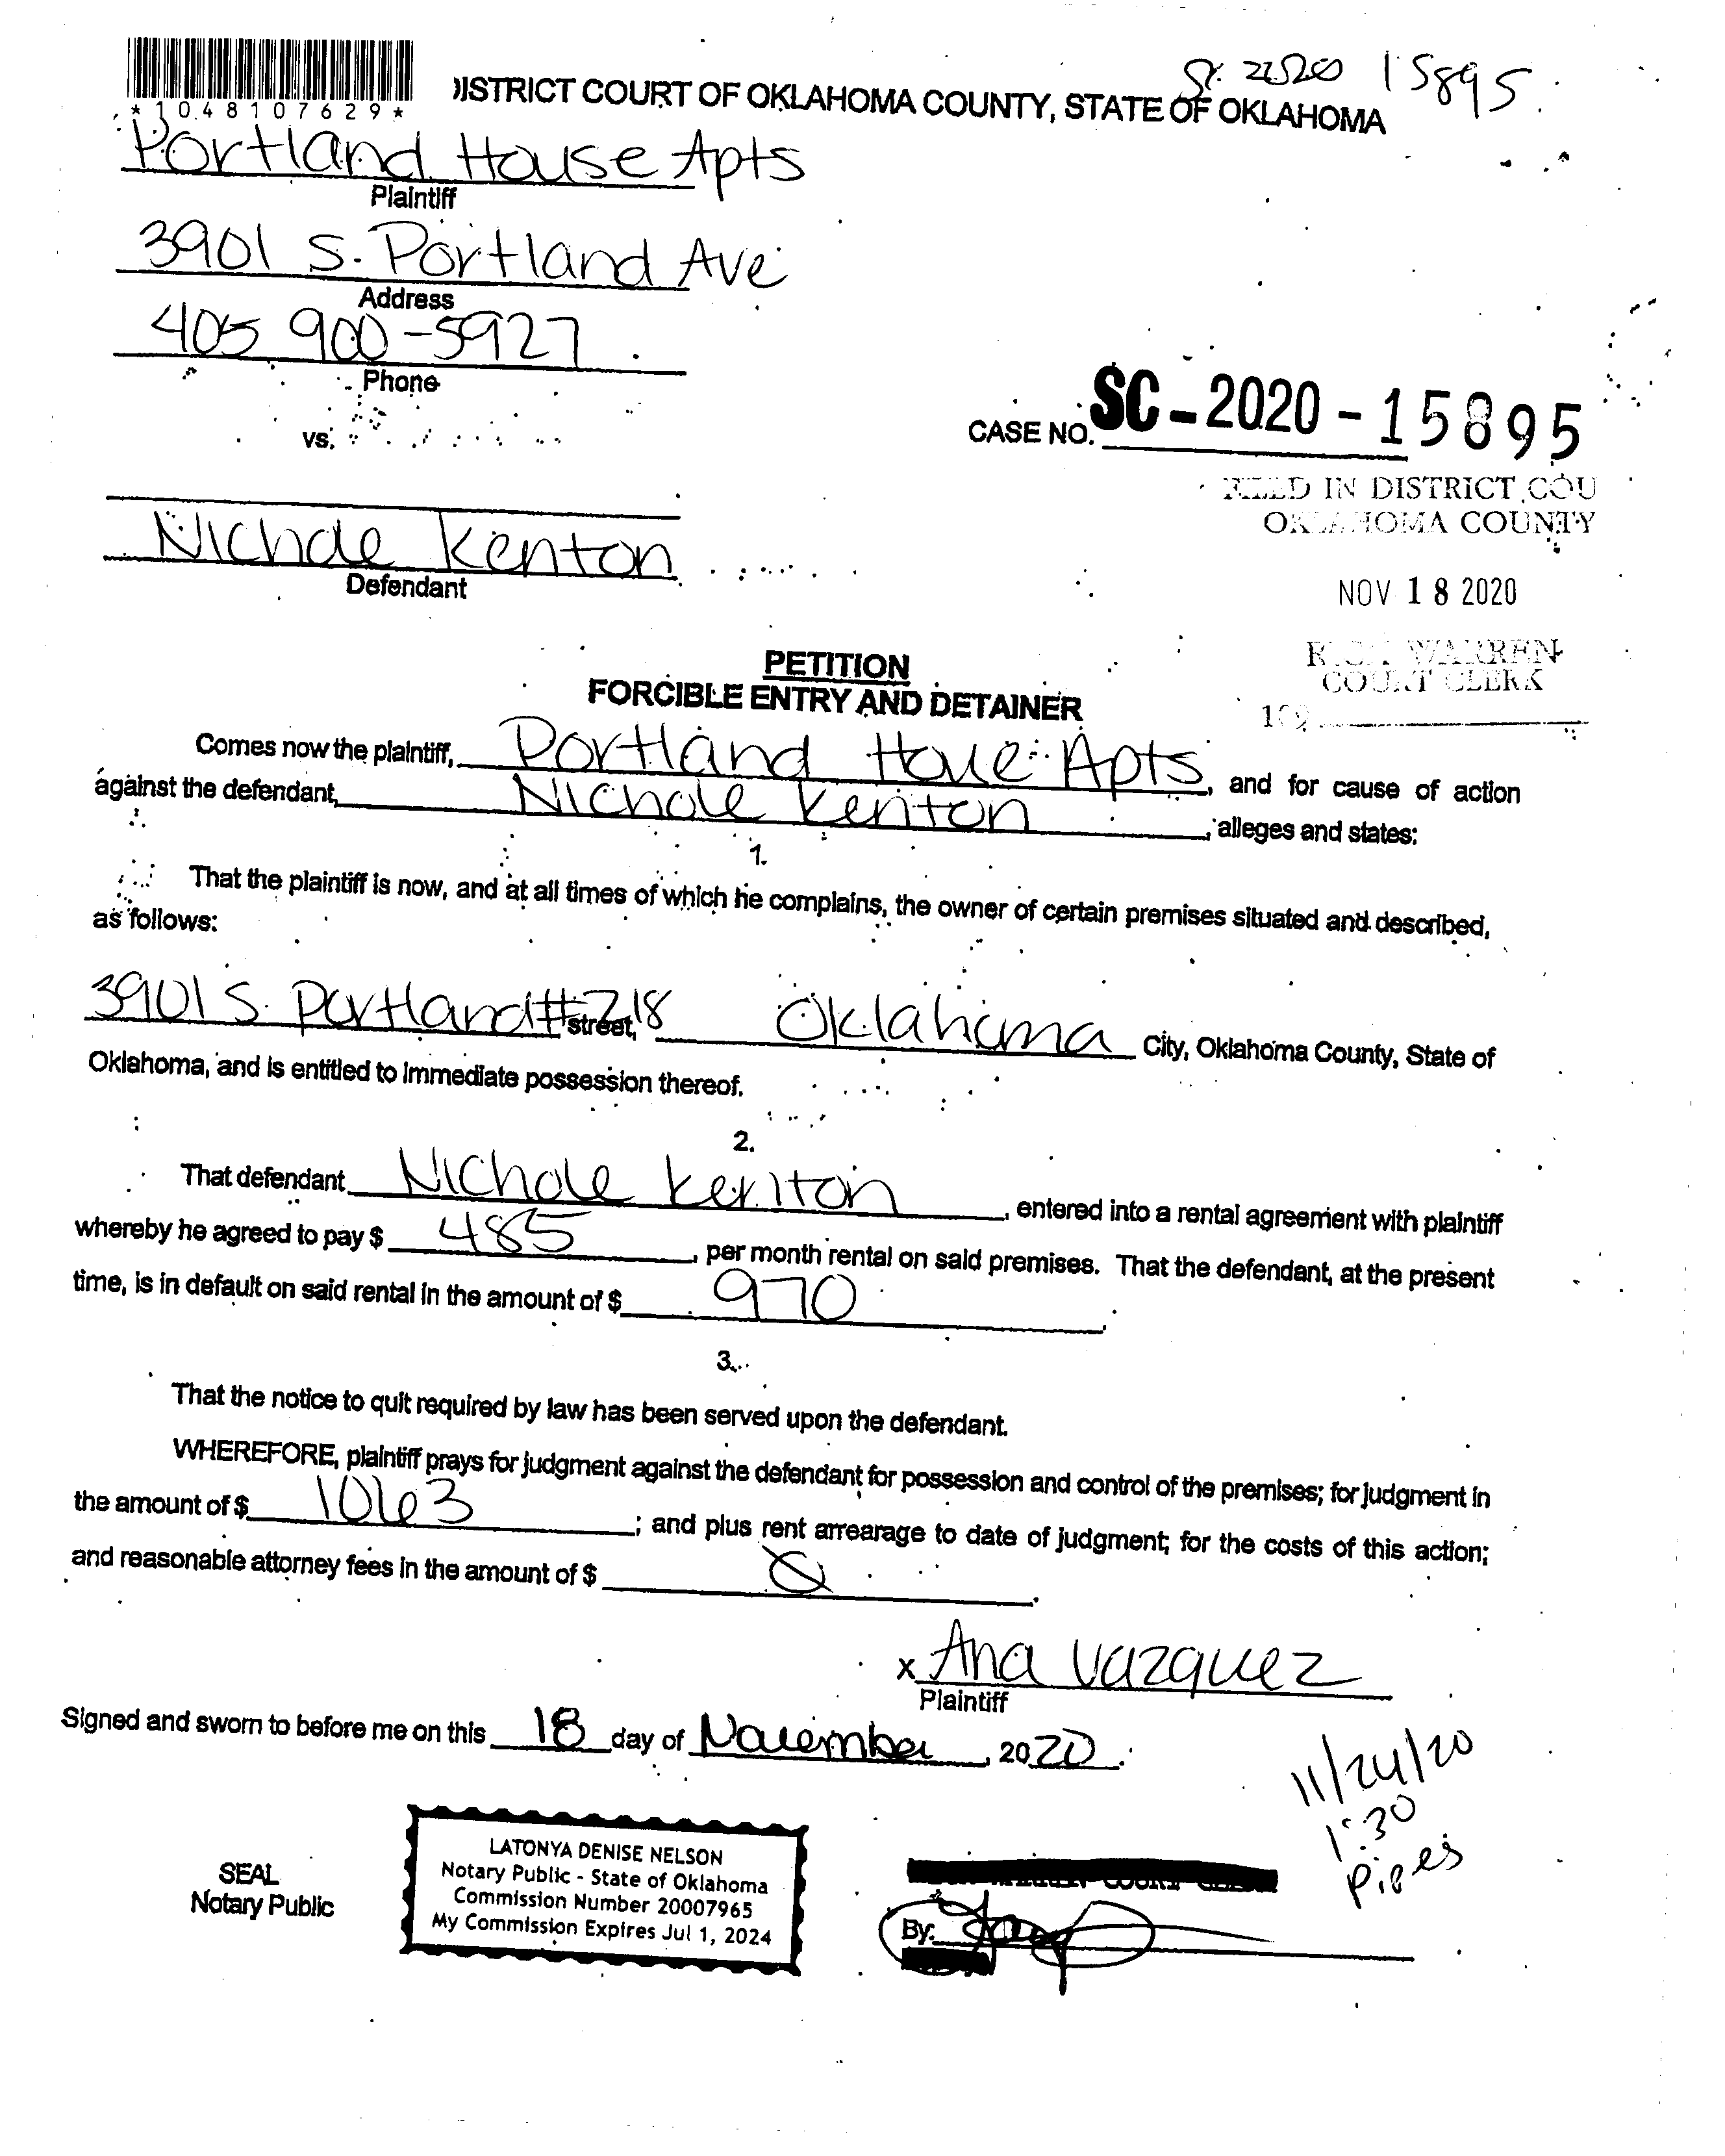 SC 2020 15895
*1048107629*
DISTRICT COURT OF OKLAHOMA COUNTY, STATE OF OKLAHOMA
Portland House Apts
Plaintiff
3901 S. Portland Ave
Address
405 900-5927
Phone
vs.
CASE NO. SC-2020-15895
FILED IN DISTRICT COU
OKLAHOMA COUNTY
Nichole Kenton
Defendant
NOV 18 2020
RICK WARREN
COURT CLERK
109
PETITION
FORCIBLE ENTRY AND DETAINER
Comes now the plaintiff, Portland House Apts, and for cause of action
against the defendant, Nichole Kenton, alleges and states:
1.
That the plaintiff is now, and at all times of which he complains, the owner of certain premises situated and described,
as follows:
3901 S. Portland #218 street, Oklahoma City, Oklahoma County, State of
Oklahoma, and is entitled to immediate possession thereof.
2.
That defendant Nichole Kenton, entered into a rental agreement with plaintiff
whereby he agreed to pay $ 485, per month rental on said premises. That the defendant, at the present
time, is in default on said rental in the amount of $ 970.
3.
That the notice to quit required by law has been served upon the defendant.
WHEREFORE, plaintiff prays for judgment against the defendant for possession and control of the premises; for judgment in
the amount of $ 1063; and plus rent arrearage to date of judgment; for the costs of this action;
and reasonable attorney fees in the amount of $ 0.
x Ana Vazquez
Plaintiff
Signed and sworn to before me on this 18 day of November, 2020.
11/24/20
1:30
Pipes
SEAL
Notary Public
LATONYA DENISE NELSON
Notary Public - State of Oklahoma
Commission Number 20007965
My Commission Expires Jul 1, 2024
COURT CLERK
By: